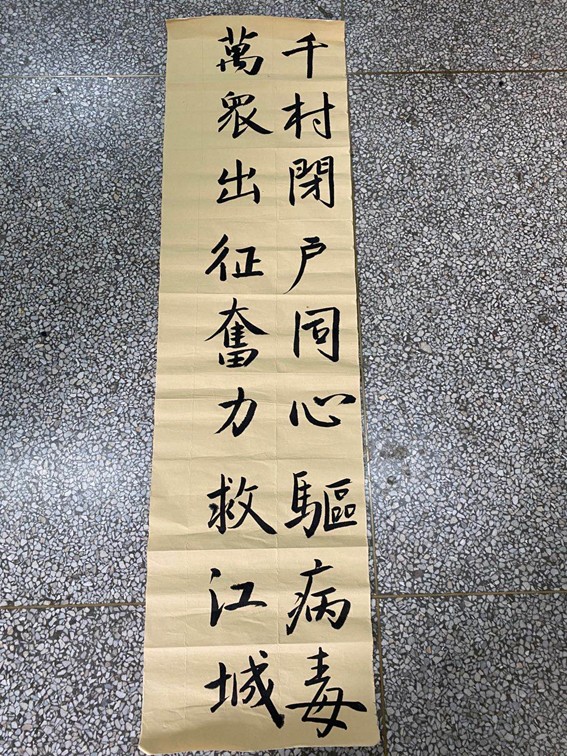 千村閉户同心驅病毒
萬衆出征奮力救江城